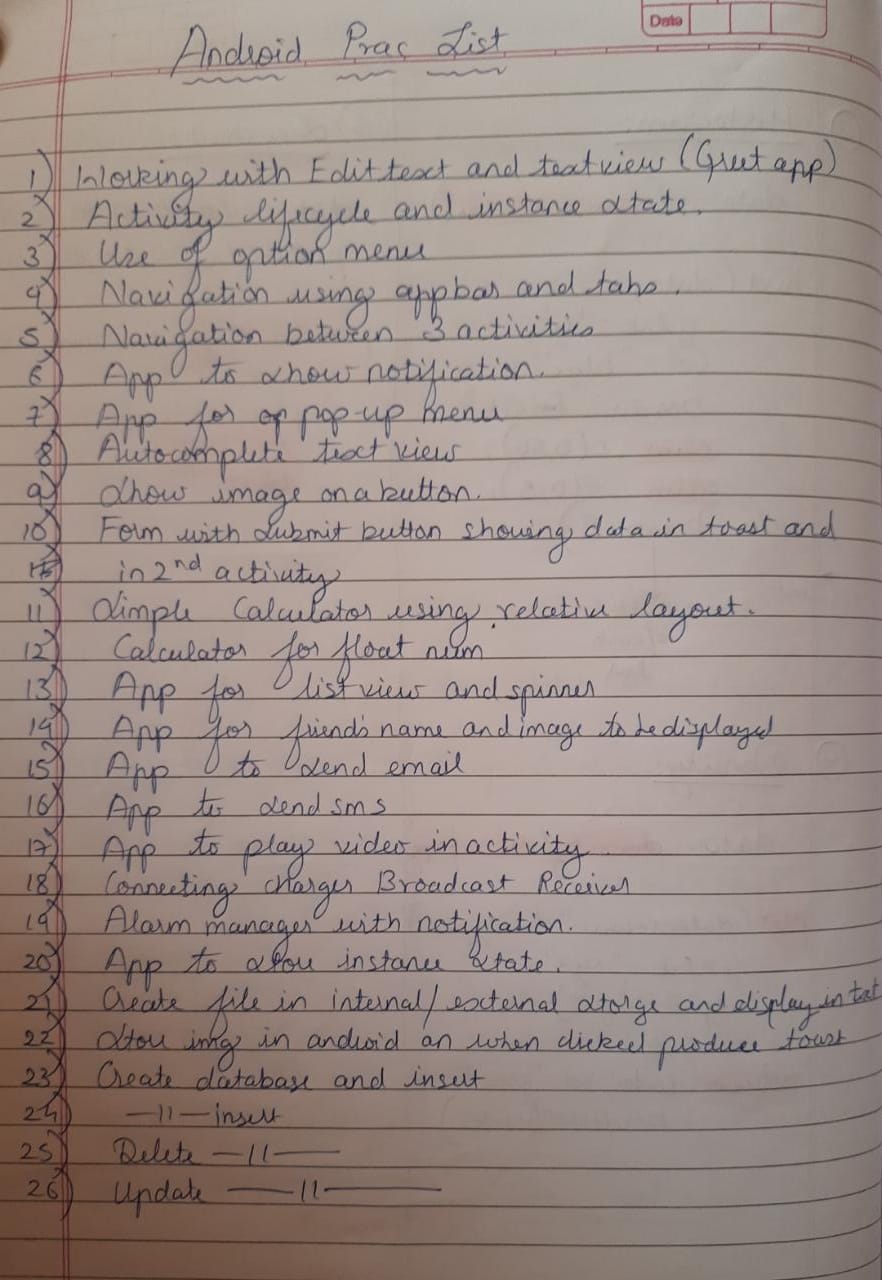 Date
Android Prac List
1) Working with Edit text and text view (Greet app)
2) Activity lifecycle and instance state.
3) Use of option menu
4) Navigation using app bar and tabs.
5) Navigation between 3 activities
6) App to show notification.
7) App for pop-up menu
8) Autocomplete text view
9) Show image on a button.
10) Form with Submit button showing data in toast and
in 2nd activity
11) Simple Calculator using relative layout.
12) Calculator for float num
13) App for list view and spinner
14) App for friend's name and image to be displayed
15) App to send email
16) App to send sms
17) App to play video in activity
18) Connecting charger Broadcast Receiver
19) Alarm manager with notification.
20) App to store instance state.
21) Create file in internal/external storge and display in
22) Store img in android an when clicked produce toast
23) Create database and insert
24) —11— insert
25) Delete —11—
26) Update —11—